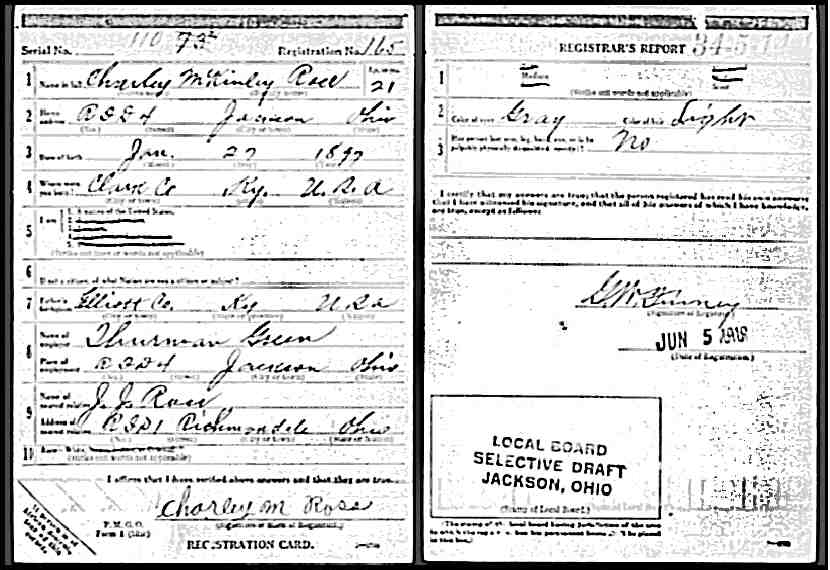 Serial No. 110 73
Registration No. 165
1 Name in full Charley McKinley Ross
21
2 Home address R F D 4 Jackson Ohio
(No.) (Street) (City or town) (State)
3 Date of birth Jan. 27 1897
4 Where were you born? Clark Co Ky. U.S.A
5 I am
1. A native of the United States.
(Strike out lines or words not applicable)
6 If not a citizen, of what Nation are you a citizen or subject?
7 Father's birthplace Elliott Co. Ky U.S.A
8 Name of employer Thurman Green
Place of employment R F D 4 Jackson Ohio
(No.) (Street) (City or town) (State)
9 Name of nearest relative J. J. Ross
Address of nearest relative R F D 1 Richmondale Ohio
(No.) (Street) (City or town) (State or Nation)
10 Race—White,
(Strike out words not applicable)
I affirm that I have verified above answers and that they are true.
Charley M Ross
P. M. G. O.
Form 1
REGISTRATION CARD.
REGISTRAR'S REPORT 34-5-1
1 Medium
(Strike out words not applicable)
2 Color of eyes Gray Color of hair Light
3 No
I certify that my answers are true; that the person registered has read his own answers; that I have witnessed his signature, and that all of his answers of which I have knowledge, are true, except as follows:
(Signature of Registrar)
JUN 5 1918
(Date of Registration)
LOCAL BOARD
SELECTIVE DRAFT
JACKSON, OHIO
(Stamp of Local Board)